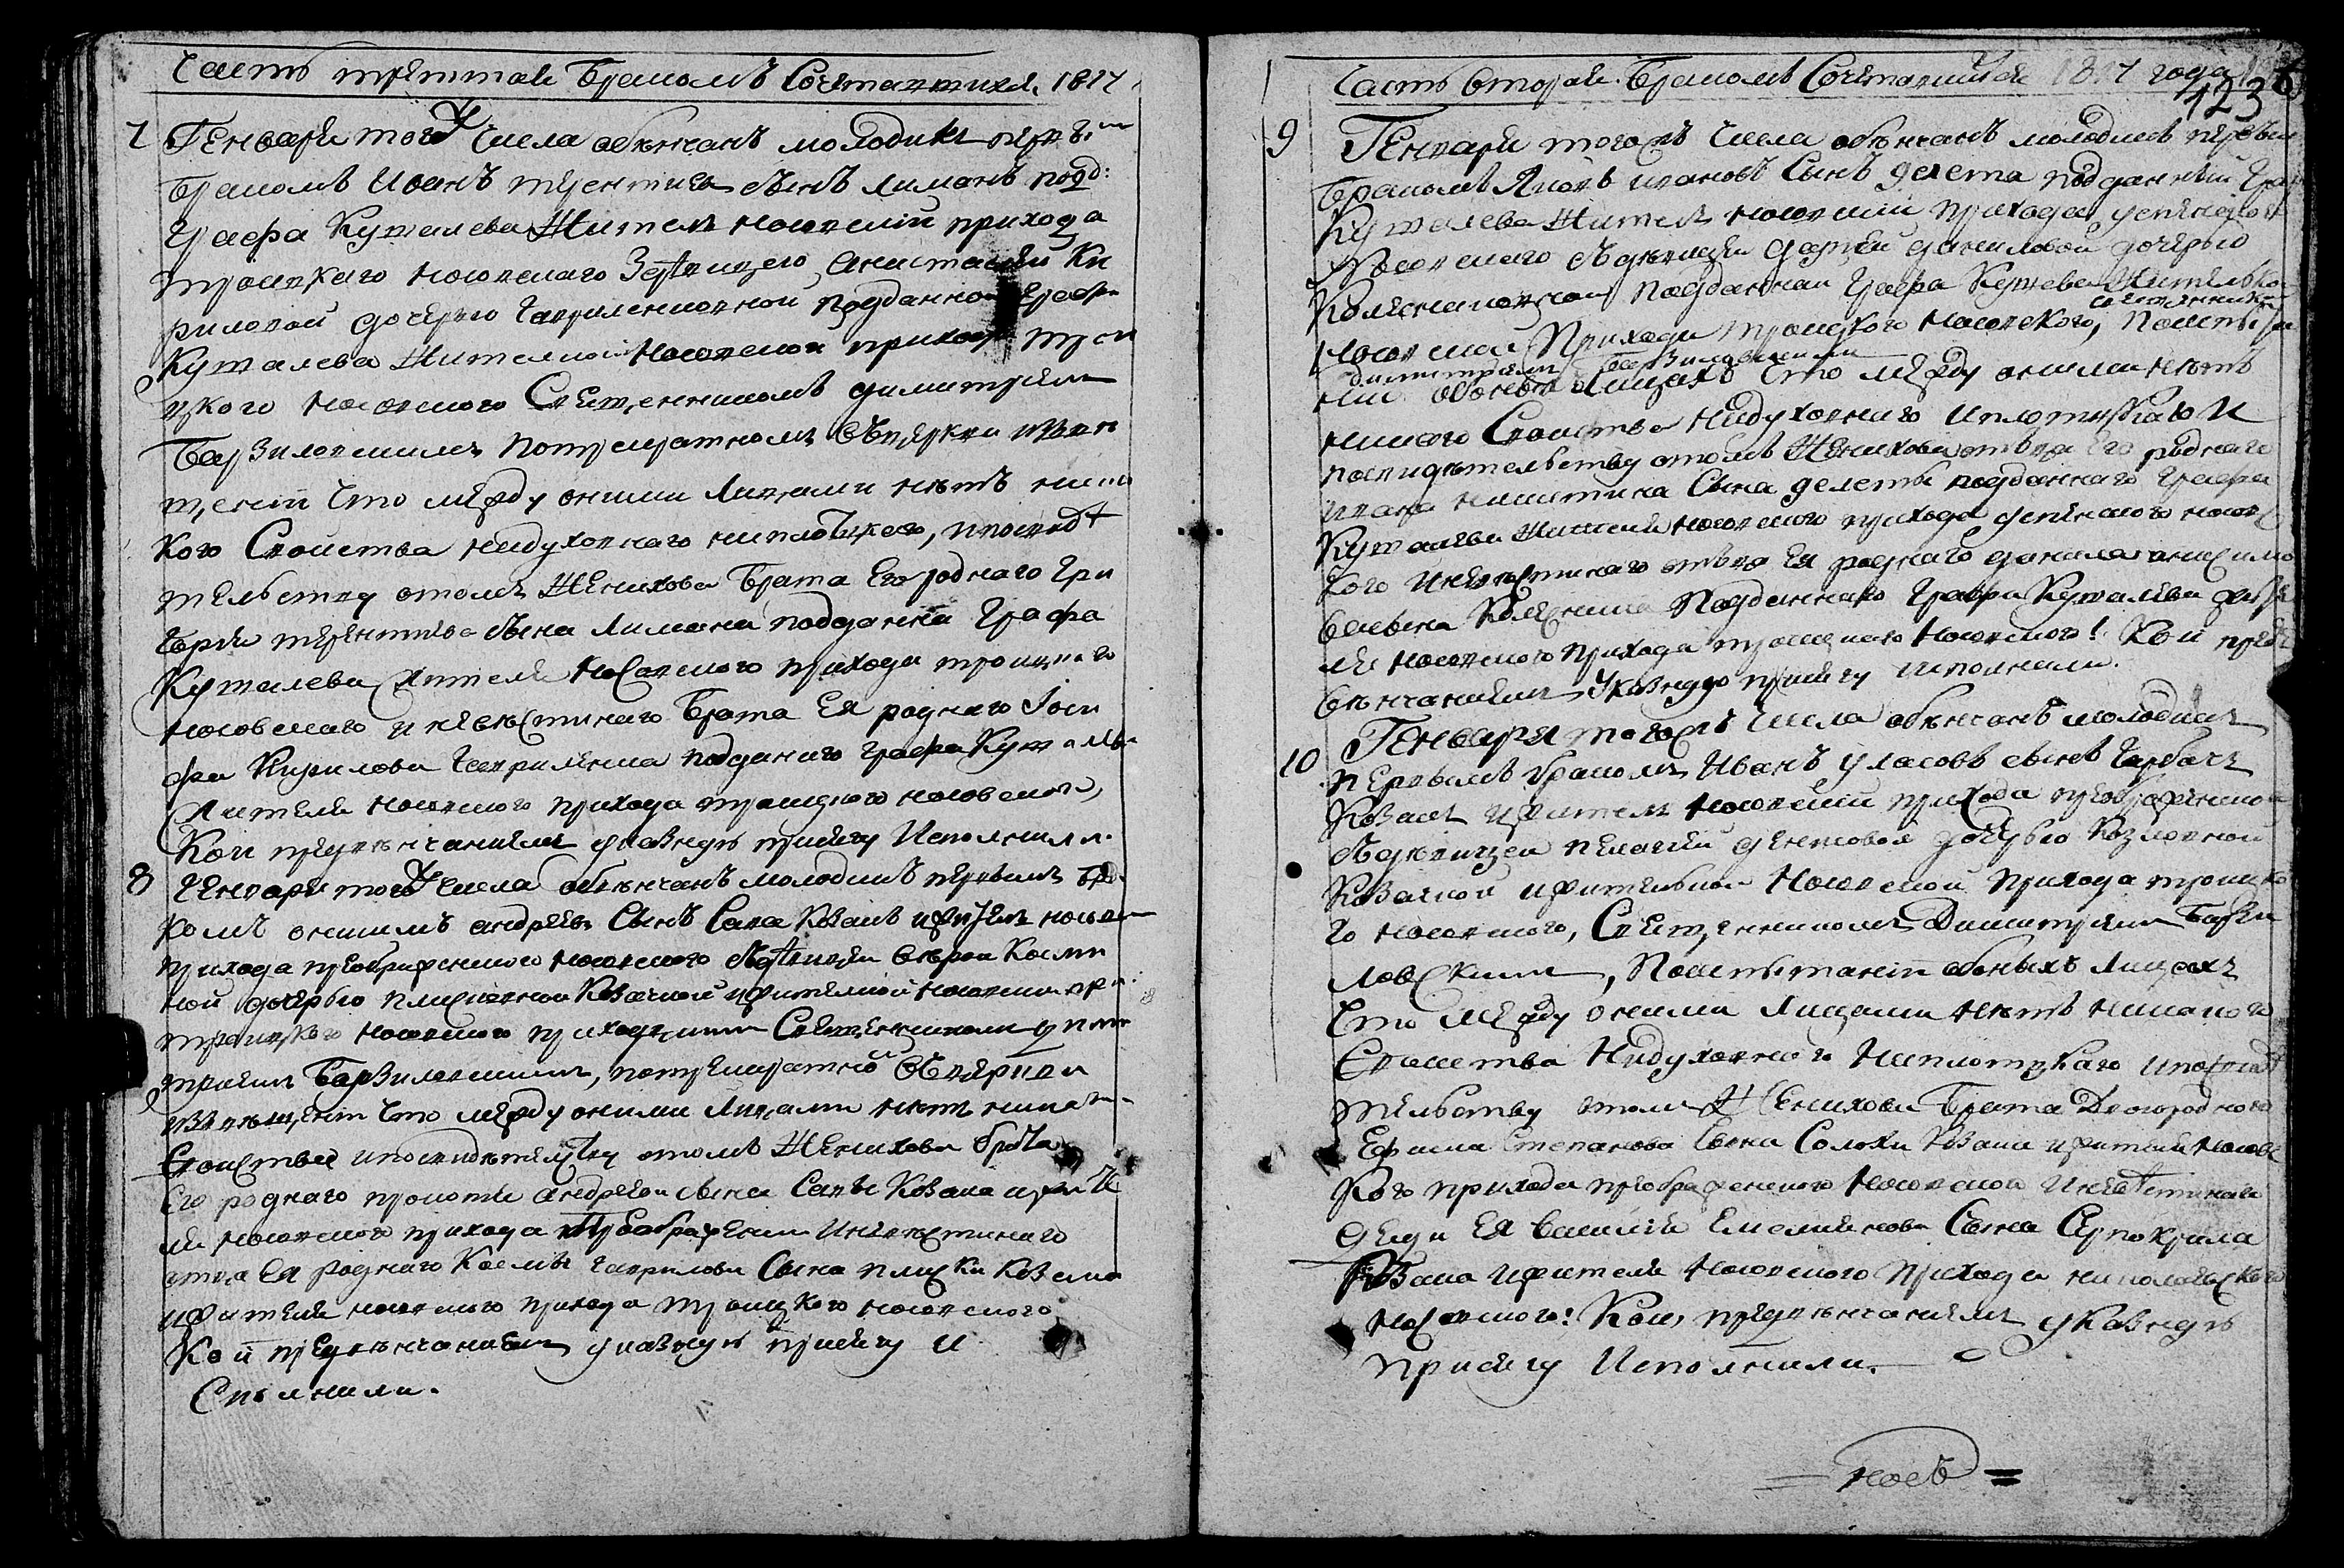 Часть треттая Бракомъ Сочетавшихся, 1817
7 Генваря того ж числа обвенчанъ молодикъ первымъ
Бракомъ Иванъ терентиевъ сынъ Лиманъ подд:
Графа Кутаисева Житель носовский прихода
троицкаго носовскаго Здевицею Анастасией Ки
риловой дочерью Гавриленковной подданной Графа
Кутаисева Жителькой Носовской прихода трои
цкого носовского Священникомъ димитриемъ
Барзиловскимъ потрекратномъ Въцеркви извѣ
щении Что между оными Лицами нѣтъ ника
кого Свойства нидуховнаго ниплотцкаго, ипосвидѣ
тельству отомъ Женихова Брата Его роднаго Гри
горія терентиева сына Лимана подданна Графа
Кутаисева жителя носовского прихода троицкаго
носовскаго и невѣстинаго Брата Ея роднаго Іоси
фа Кирилова Гавриленка подданаго графа Кутаисева
Жителя носовского прихода троицкого носовского,
Кои предвѣнчаниемъ указную присягу Исполнили.
8 Генваря того ж числа обвѣнчанъ молодикъ первымъ бра
комъ онисимъ андреевъ Сынъ Сапа Козакъ ижитель носовский
прихода преображенского носовского Здѣвицею Косми
ной дочерью Козачкой ижителькой носовской
троицкого носовского прихода Священникомъ дими
триемъ Барзиловскимъ, потрекратно Вцеркви
извѣщении Что между оными Лицами нѣтъ никакого
Свойства ипосвидѣтельству отомъ Женихова брата
Его роднаго прокопия андреева сына Сапы Козака ижите
ля носовского прихода Преображения Иневѣстинаго
отца Ея роднаго Космы гаврилова Сына Козака
ижителя носовского прихода троицкого носовского
Кои предвѣнчаниемъ указную присягу и
Сполнили.
Часть Вторая Бракомъ Сочетавшихся 1817 года
123
9 Генваря того жъ числа обвѣнчанъ молодикъ первымъ
Бракомъ Яковъ ивановъ Сынъ делета подданный Графа
Кутаисева Житель носовский прихода успенского
Носовского Здѣвицею дарией даниловой дочерью
подданной Графа Кутасева Жителькой
носовской Прихода троицкого носовского, священникомъ
димитриемъ Барзиловскимъ Поиспыта
нии обоныхъ Лицахъ Что между оними нѣтъ
никакого Свойства нидуховнаго иплотцкаго И
посвидѣтельству отомъ Женихова отца Его роднаго
ивана никитина Сына делеты подданнаго Графа
Кутаисева Жителя носовского прихода успенского носовс
кого Иневѣстинаго отца Ея роднаго данила
сына Подданнаго Графа Кутаисева жите
ля носовского прихода троицкаго носовского! Кои предъ
вѣнчаниемъ Указную присягу исполнили.
10 Генваря того жъ числа обвѣнчанъ молодикъ
первымъ бракомъ Иванъ уласовъ сынъ Гарбачъ
Козакъ ижитель носовский прихода преображенского
Здѣвицею пелагией дочерью Козловной
Козачкой ижителькой Носовской Прихода троицко
го носовского, Священникомъ Димитриемъ Барзи
ловскимъ, Поиспытании обоныхъ Лицахъ
Что между оними Лицами нѣтъ никакого
Свойства Нидуховного Ниплотцкаго ипосвидѣ
тельству отомъ Женихова Брата Двоюродного
Ефима Степанова Сына Солохи Козака ижителя носовс
кого прихода преображенского Носовской Иневѣстинаго
деда Ея Василия Емелиянова Сына Серпокрила
Козака ижителя Носовского Прихода николаевского
носовского: Кои, предвѣнчаниемъ указную
присягу Исполнили.